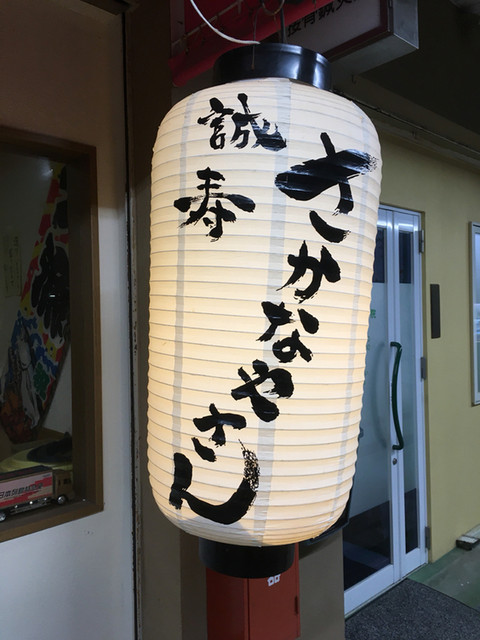 さかなやさん
誠寿